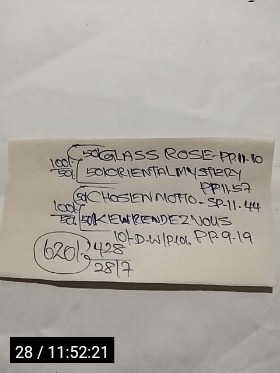 50 GLASS ROSE-PP.11-10
100/- 50/ 50 ORIENTAL MYSTERY
PP11-57
50 CHOSIEN MOTTO-SP-11-44
100/- 50/ 50 KEW RENDEZVOUS
10/-D.W/P.LOA PP-9-19
620/- 428
28/7
28 / 11:52:21